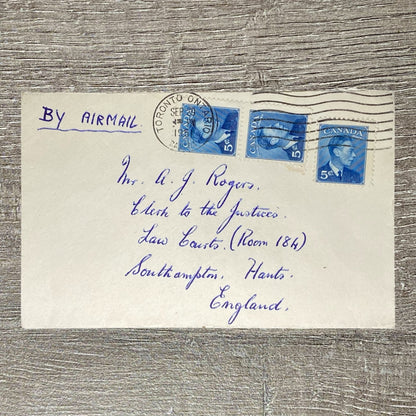 BY AIRMAIL
TORONTO ONTARIO
CANADA
5¢
5¢
5¢
Mr. A. J. Rogers.
Clerk to the Justices.
Law Courts. (Room 184)
Southampton. Hants.
England.